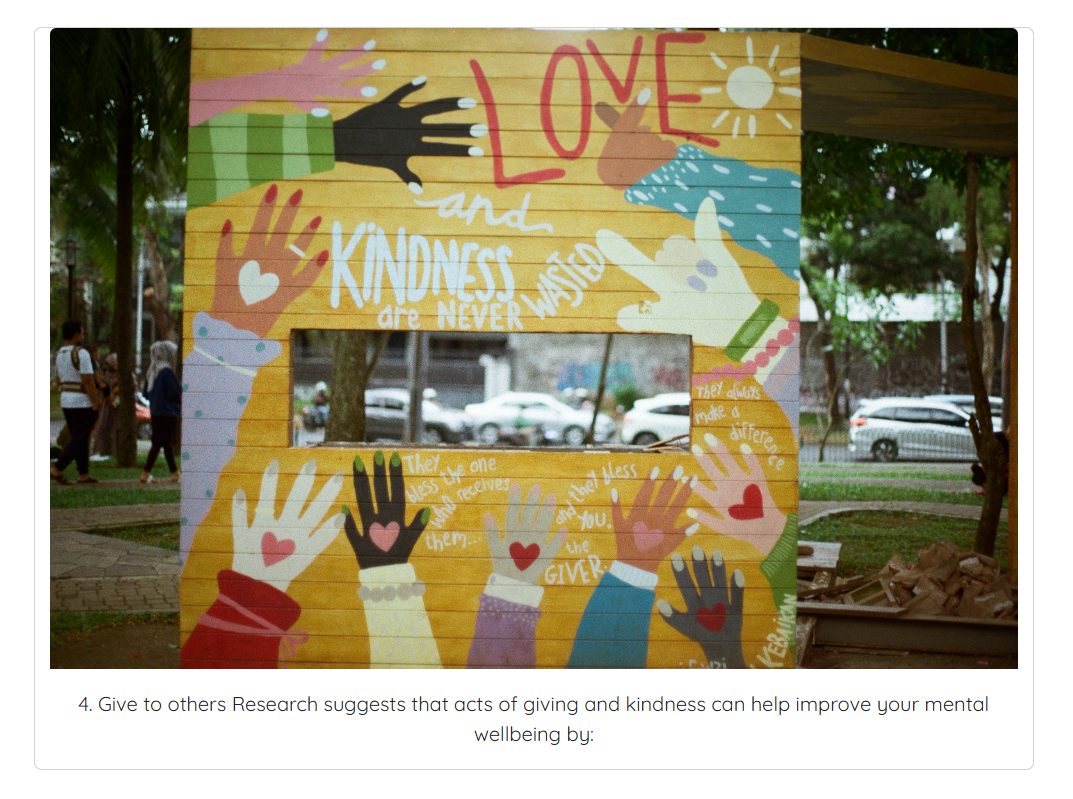 LOVE
and
KINDNESS
are NEVER WASTED
They always
make a
difference
They
bless the one
who receives
them...
and they bless
YOU,
the
GIVER.
KEBAIKAN
4. Give to others Research suggests that acts of giving and kindness can help improve your mental
wellbeing by: